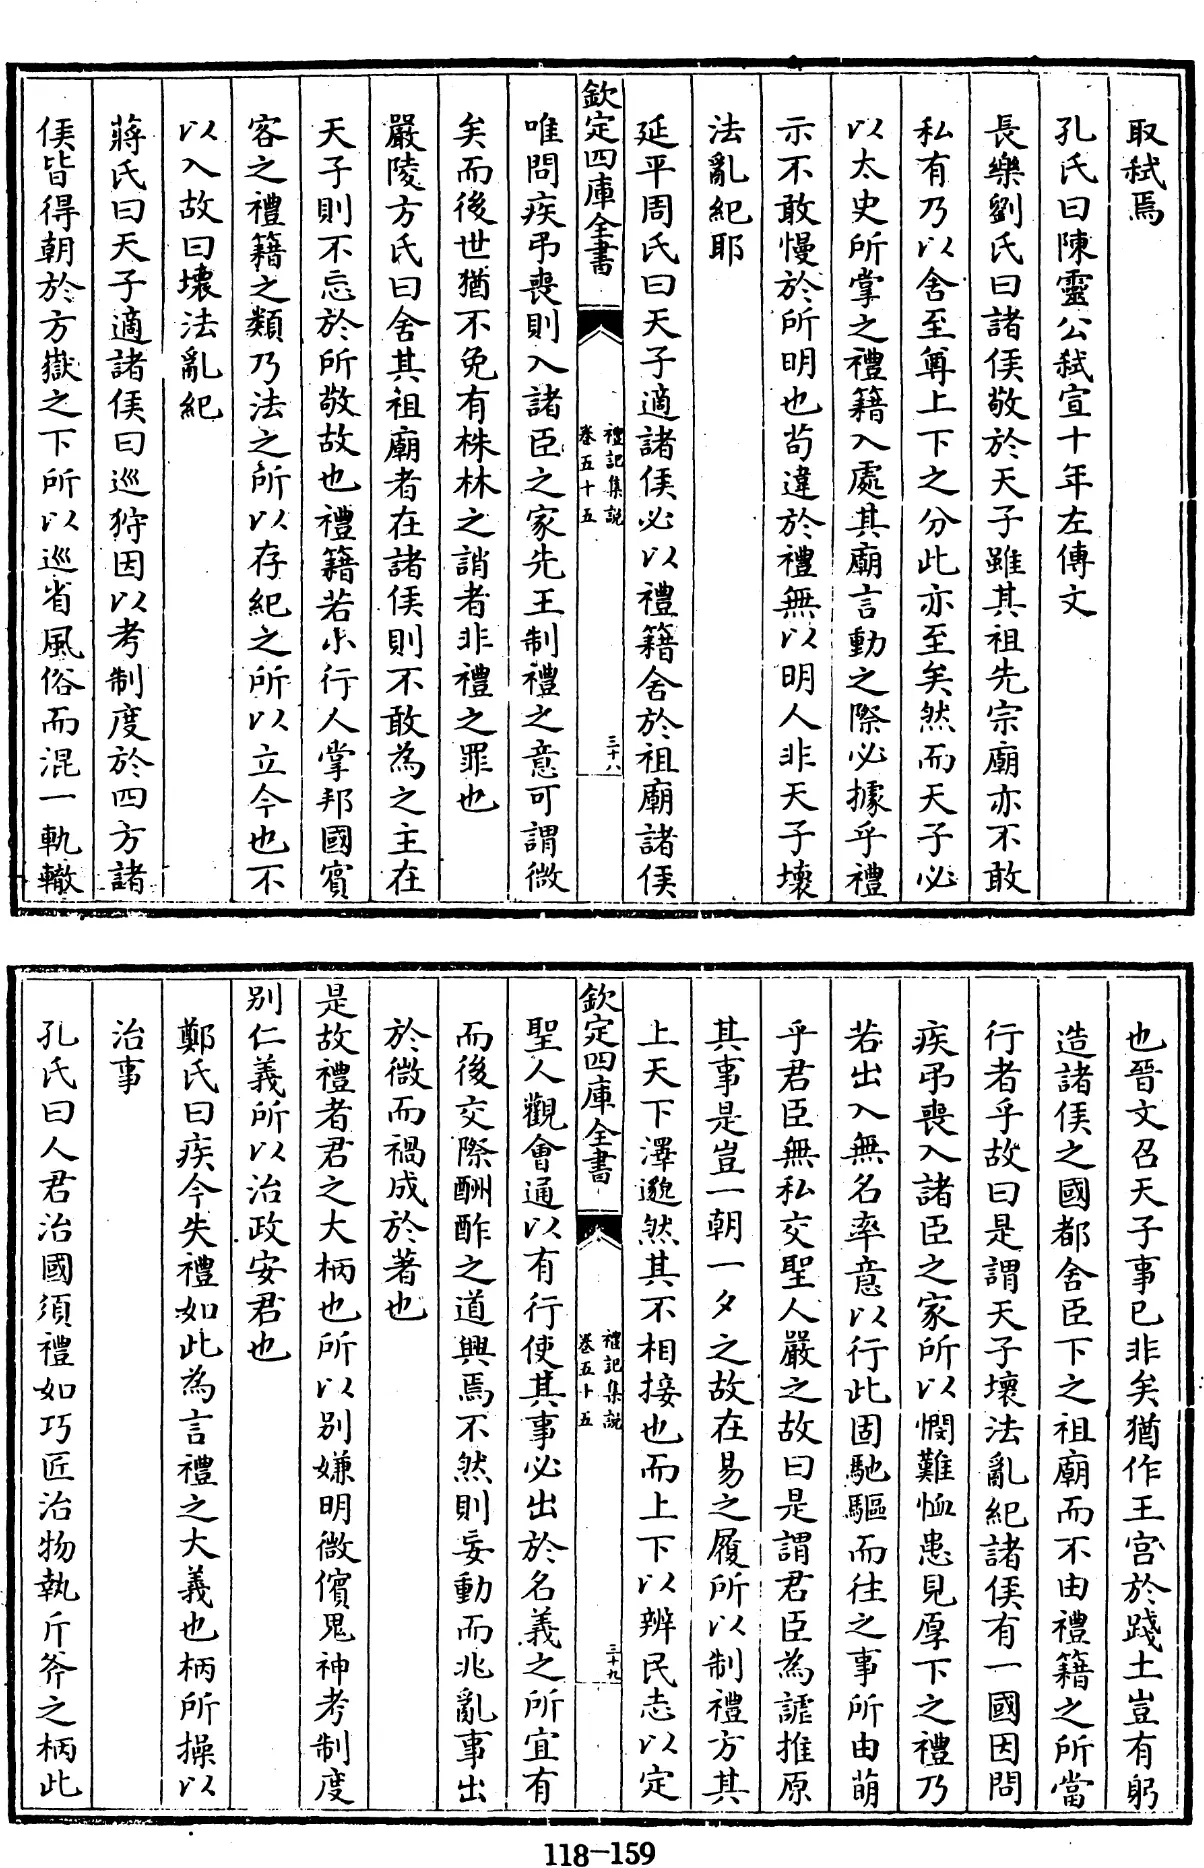 取弑焉
孔氏曰陳靈公弑宣十年左傳文
長樂劉氏曰諸侯敬於天子雖其祖先宗廟亦不敢
私有乃以舍至尊上下之分此亦至矣然而天子必
以太史所掌之禮籍入處其廟言動之際必據乎禮
示不敢慢於所明也茍違於禮無以明人非天子壞
法亂紀耶
延平周氏曰天子適諸侯必以禮籍舍於祖廟諸侯
欽定四庫全書
禮記集說
卷五十五
三十八
唯問疾弔喪則入諸臣之家先王制禮之意可謂微
矣而後世猶不免有株林之誚者非禮之罪也
嚴陵方氏曰舍其祖廟者在諸侯則不敢為之主在
天子則不忘於所敬故也禮籍若小行人掌邦國賓
客之禮籍之類乃法之所以存紀之所以立今也不
以入故曰壞法亂紀
蔣氏曰天子適諸侯曰巡狩因以考制度於四方諸
侯皆得朝於方嶽之下所以巡省風俗而混一軌轍
也晉文召天子事已非矣猶作王宮於踐土豈有躬
造諸侯之國都舍臣下之祖廟而不由禮籍之所當
行者乎故曰是謂天子壞法亂紀諸侯有一國因問
疾弔喪入諸臣之家所以憫難恤患見厚下之禮乃
若出入無名率意以行此固馳驅而往之事所由萌
乎君臣無私交聖人嚴之故曰是謂君臣為謔推原
其事是豈一朝一夕之故在易之履所以制禮方其
上天下澤邈然其不相接也而上下以辨民志以定
欽定四庫全書
禮記集說
卷五十五
三十九
聖人觀會通以有行使其事必出於名義之所宜有
而後交際酬酢之道興焉不然則妄動而兆亂事出
於微而禍成於著也
是故禮者君之大柄也所以别嫌明微儐鬼神考制度
别仁義所以治政安君也
鄭氏曰疾今失禮如此為言禮之大義也柄所操以
治事
孔氏曰人君治國須禮如巧匠治物執斤斧之柄此
118-159